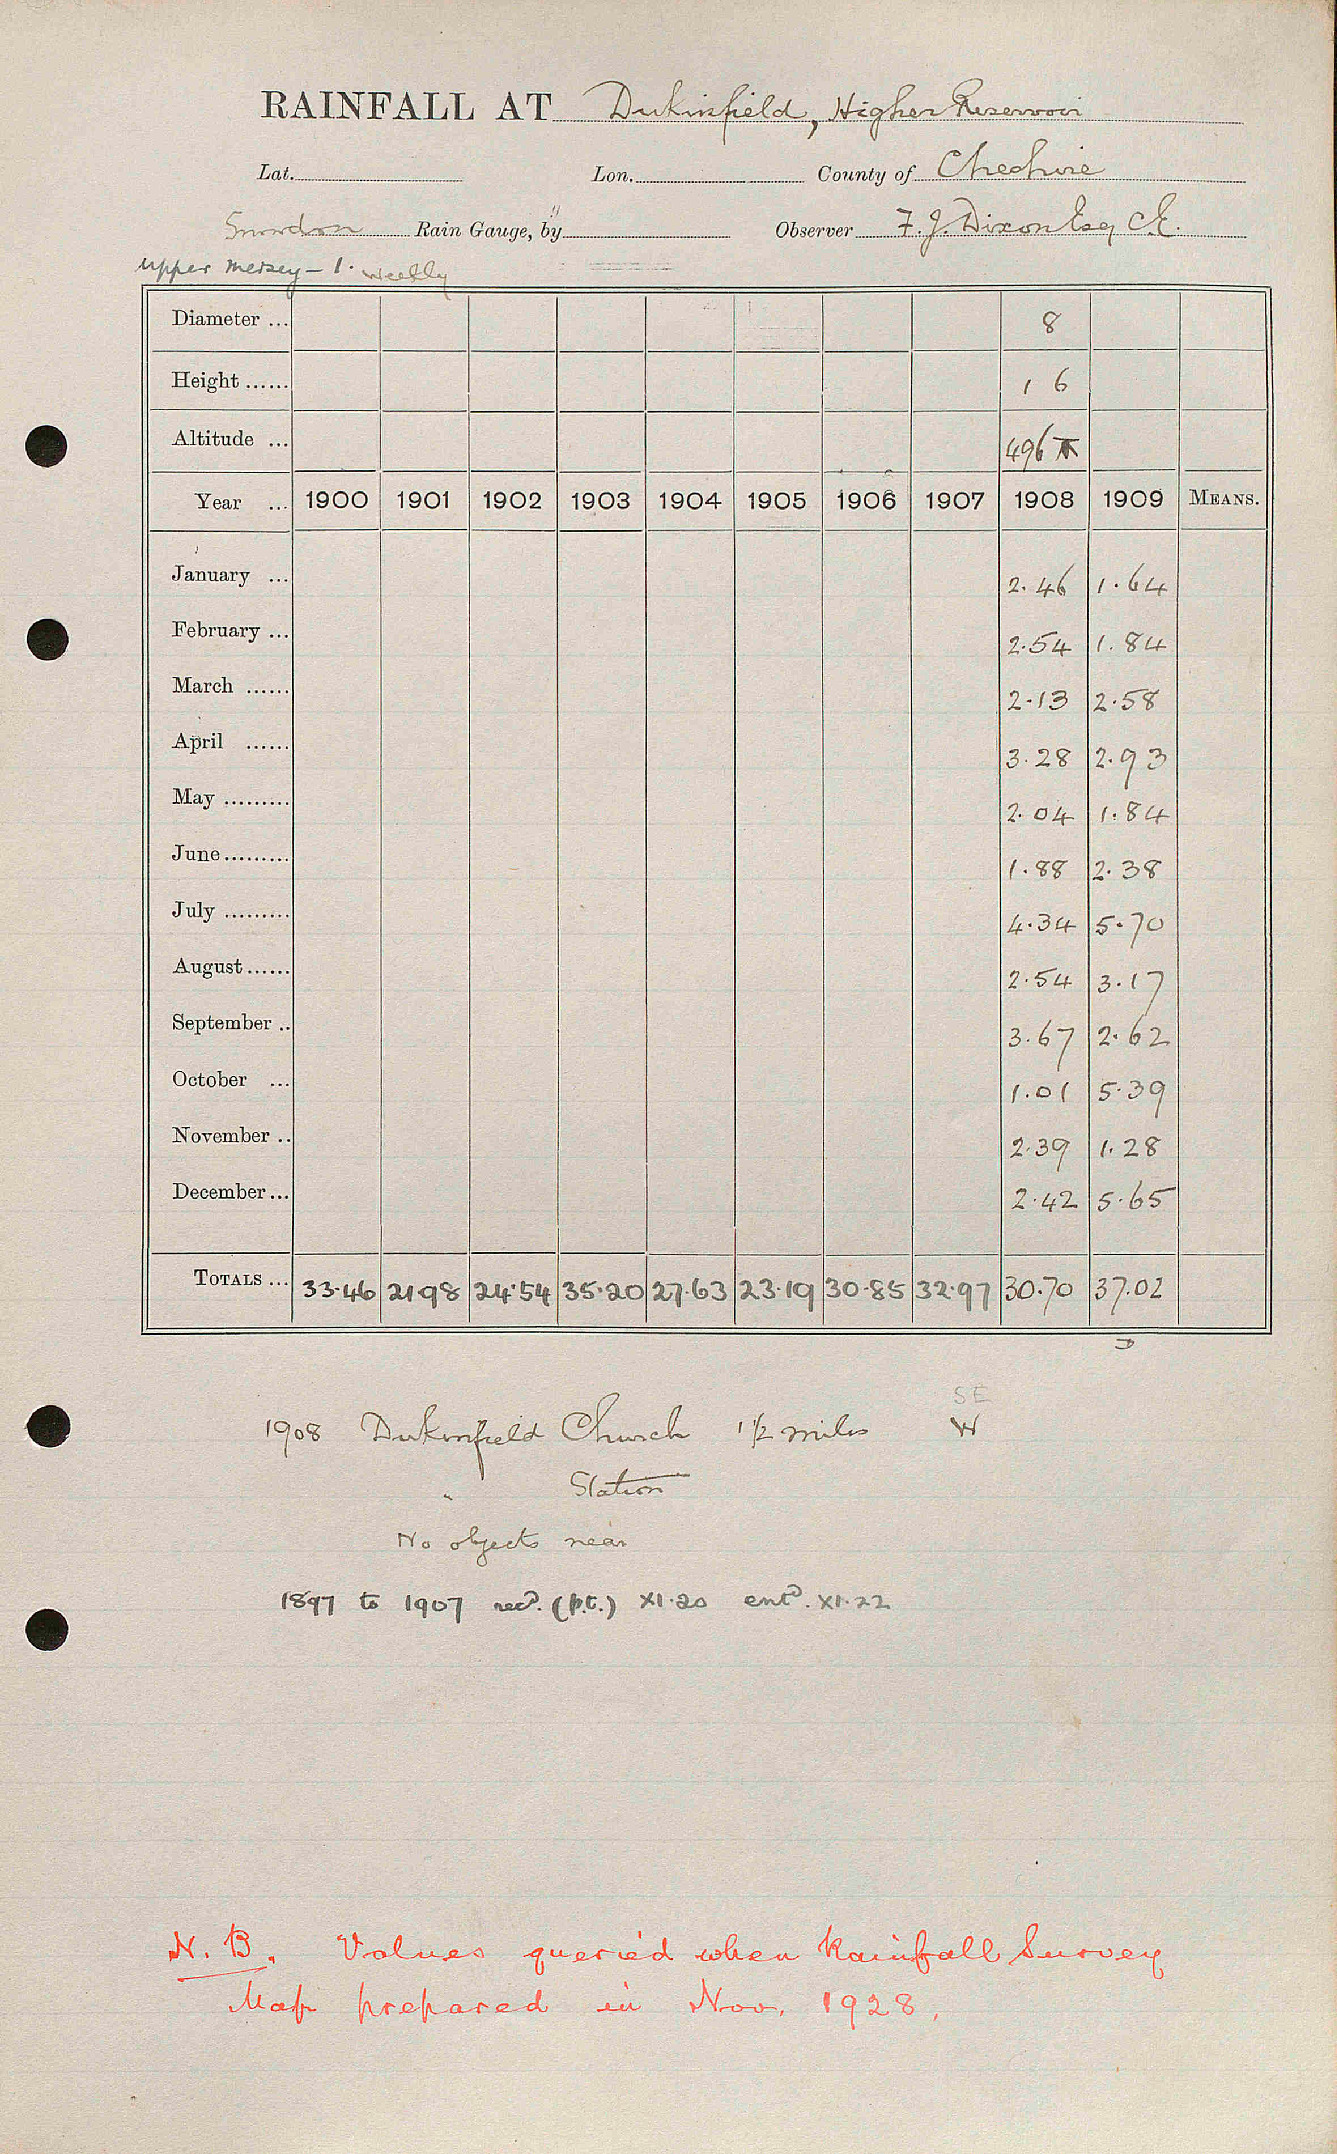 RAINFALL AT Dukinfield, Higher Reservoir
Lat. Lon. County of Cheshire
Snowdon Rain Gauge, by " Observer F. J. Dixon Esq C.E.
Upper Mersey – 1. weekly
Diameter ... 8
Height ...... 1 6
Altitude ... 496
Year ... 1900 1901 1902 1903 1904 1905 1906 1907 1908 1909 MEANS.
January ... 2.46 1.64
February ... 2.54 1.84
March ...... 2.13 2.58
April ...... 3.28 2.93
May ......... 2.04 1.84
June ......... 1.88 2.38
July ......... 4.34 5.70
August ...... 2.54 3.17
September .. 3.67 2.62
October ... 1.01 5.39
November .. 2.39 1.28
December ... 2.42 5.65
TOTALS ... 33.46 21.98 24.54 35.20 27.63 23.19 30.85 32.97 30.70 37.02
SE
1908 Dukinfield Church 1½ miles W
" Station
No objects near
1897 to 1907 recd. (p.c.) XI.20 entd. XI.22
N.B. Values queried when Rainfall Survey
Map prepared in Nov. 1928.